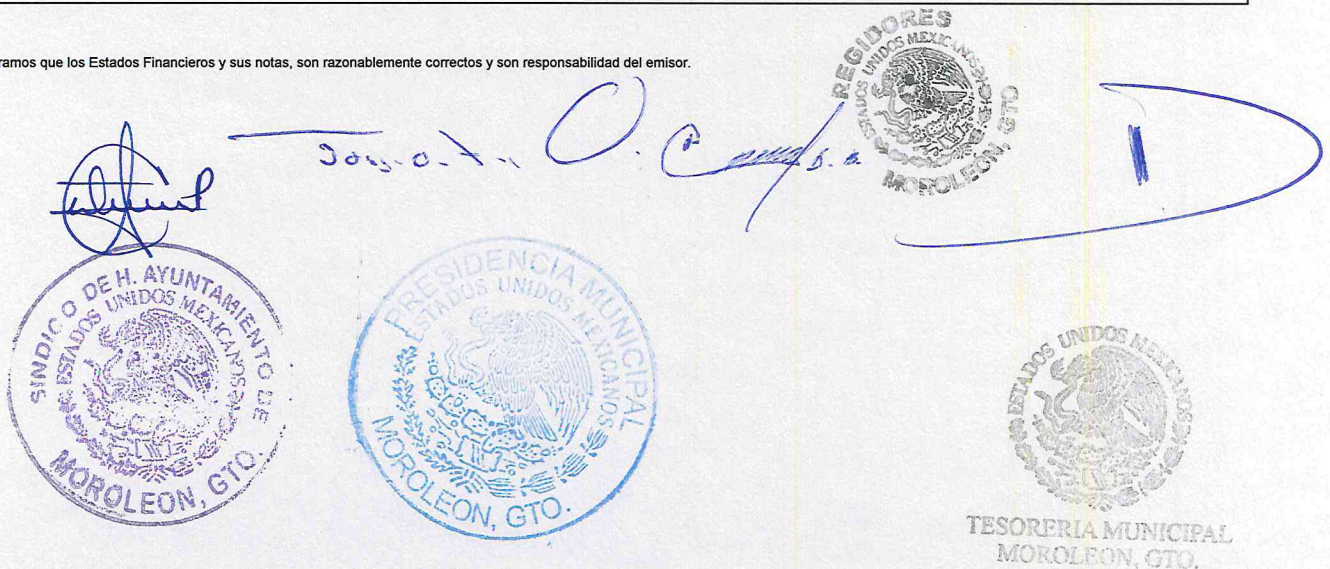 ramos que los Estados Financieros y sus notas, son razonablemente correctos y son responsabilidad del emisor.
REGIDORES
ESTADOS UNIDOS MEXICANOS
MOROLEÓN, GTO
SINDICO DE H. AYUNTAMIENTO DE
ESTADOS UNIDOS MEXICANOS
MOROLEON, GTO.
PRESIDENCIA MUNICIPAL
ESTADOS UNIDOS MEXICANOS
MOROLEON, GTO.
ESTADOS UNIDOS MEXICANOS
TESORERIA MUNICIPAL
MOROLEON, GTO.